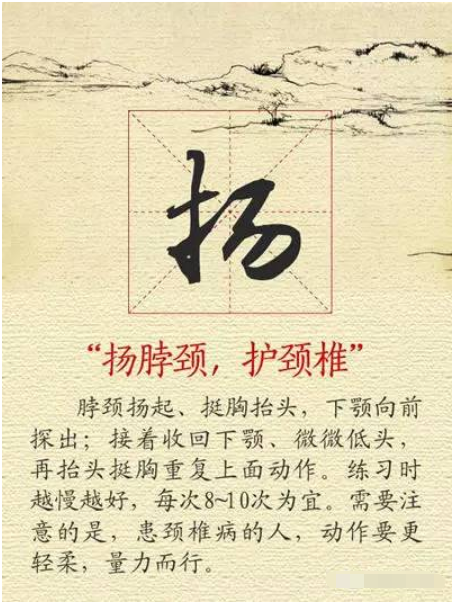 扬
“扬脖颈，护颈椎”
脖颈扬起、挺胸抬头，下颚向前
探出；接着收回下颚、微微低头，
再抬头挺胸重复上面动作。练习时
越慢越好，每次8~10次为宜。需要注
意的是，患颈椎病的人，动作要更
轻柔，量力而行。